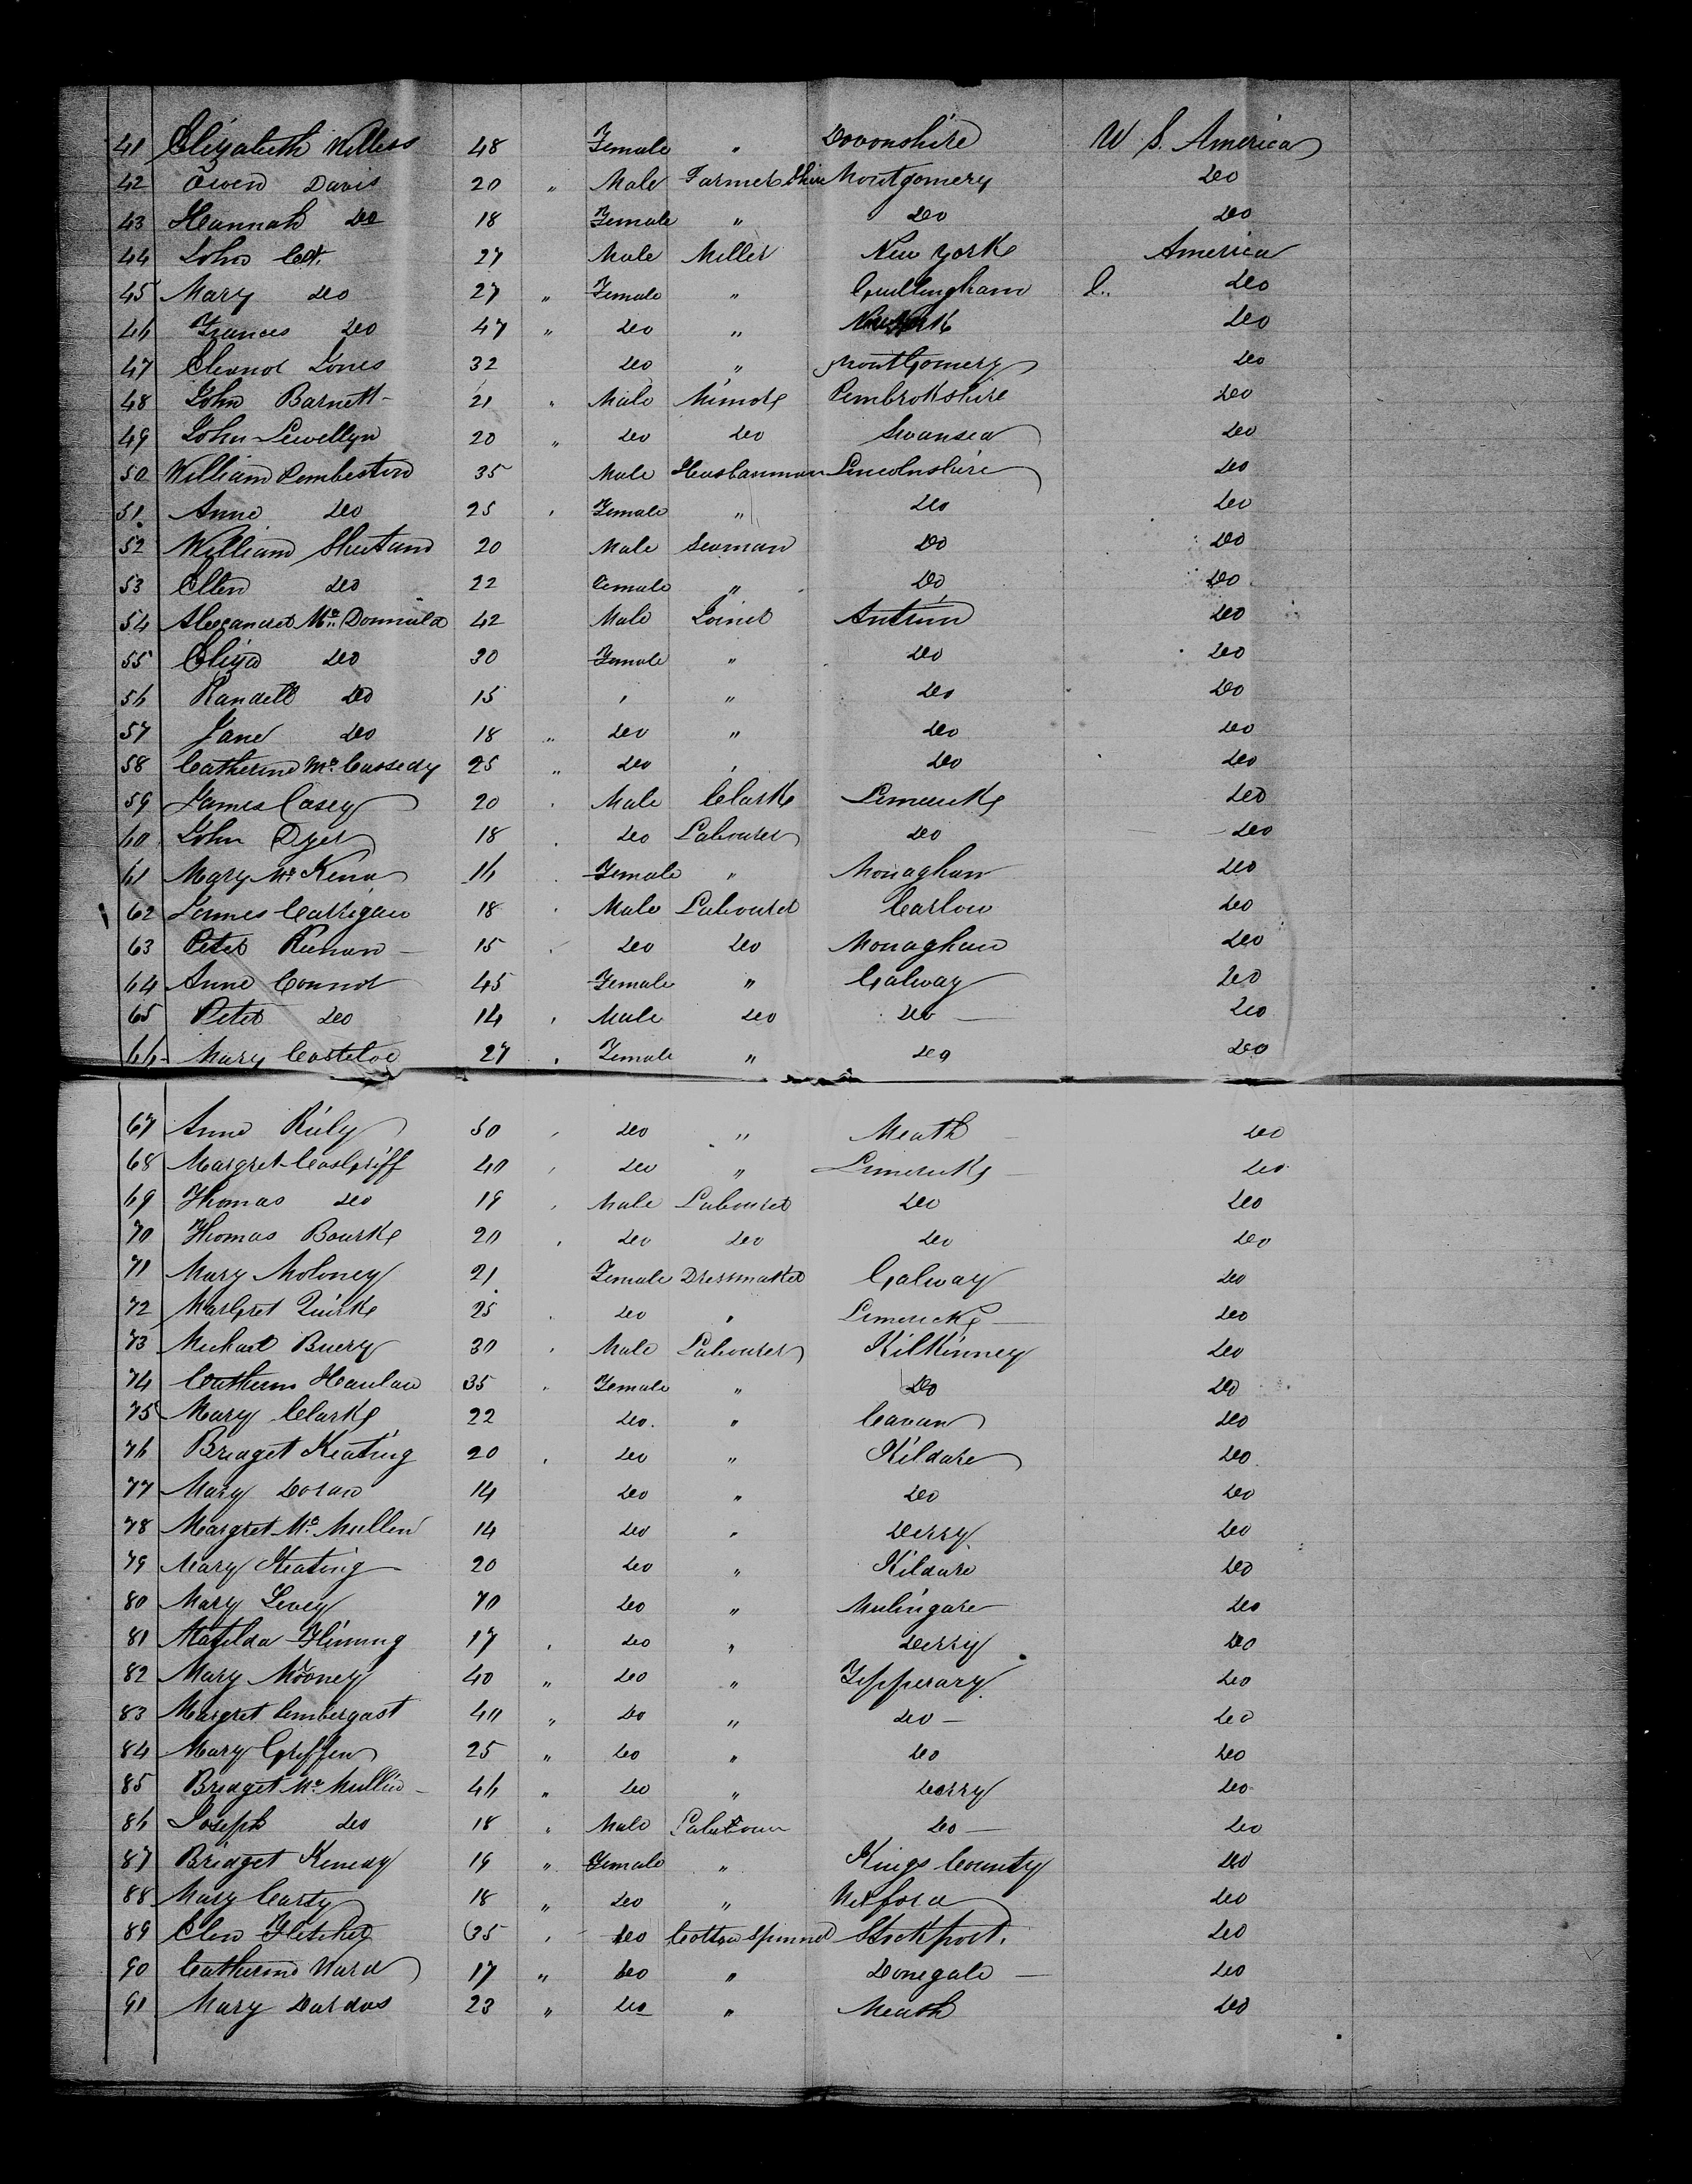 41 Elizabeth Willess 48 Female " Devonshire U S. America
42 Owen Davis 20 " Male Farmer Shire Montgomery Do
43 Hannah Do 18 Female " Do Do
44 John Cox 27 Male Miller New York America
45 Mary Do 27 " Female " Do
46 Frances Do 47 " Do " Do
47 Elenor Jones 32 Do " Montgomery Do
48 John Barnett 21 " Male Pembrokshire Do
49 John Lewellyn 20 " Do Do Swansea Do
50 William Pemberton 35 Male Husbanman Lincolnshire Do
51 Anne Do 25 " Female " Do Do
52 William 20 Male Seaman Do Do
53 Ellen Do 22 Female " Do Do
54 Alexander Mc Donnald 42 Male Joiner Antrim Do
55 Eliza Do 30 Female " Do Do
56 Randell Do 15 " " Do Do
57 Jane Do 18 " Do " Do Do
58 Catherine Mc Cassedy 25 " Do " Do Do
59 James Casey 20 " Male Clark Limerick Do
60 John Dyer 18 " Do Labourer Do Do
61 Mary Mc Kena 16 " Female " Monaghan Do
62 James Carrigan 18 " Male Labourer Carlow Do
63 Peter Keenan 15 " Do Do Monaghan Do
64 Anne Connor 45 Female " Galway Do
65 Peter Do 14 " Male Do Do Do
66 Mary Casteloe 27 " Female " Do Do
67 Anne Riely 50 " Do " Meath Do
68 Margret Cosgriff 40 " Do " Limerick Do
69 Thomas Do 19 " Male Labourer Do Do
70 Thomas Bourke 20 " Do Do Do Do
71 Mary Moloney 21 Female Dressmaker Galway Do
72 Margret Quirke 25 " Do " Limerick Do
73 Michael Buery 30 " Male Labourer Kilkinney Do
74 Catherine Hanlan 35 " Female " Do Do
75 Mary Clarke 22 Do " Cavan Do
76 Bridget Keating 20 " Do " Kildare Do
77 Mary Doran 14 Do " Do Do
78 Margret Mc Mullen 14 Do " Derry Do
79 Mary Keating 20 Do " Kildare Do
80 Mary Levey 70 Do " Mulingare Do
81 Matilda Fliming 17 " Do " Derry Do
82 Mary Mooney 40 " Do " Tipperary Do
83 Margret 40 " Do " Do Do
84 Mary Griffen 25 " Do " Do Do
85 Bridget Mc Mullin 46 " Do " Derry Do
86 Joseph Do 18 " Male Do Do
87 Bridget Kenedy 19 " Female " Kings County Do
88 Mary Carty 18 " Do " Wexford Do
89 Elen Fletcher 35 " Do Cotton Spinner Stockport. Do
90 Catherine Ward 17 " Do " Donegale Do
91 Mary Dardas 23 " Do " Meath Do